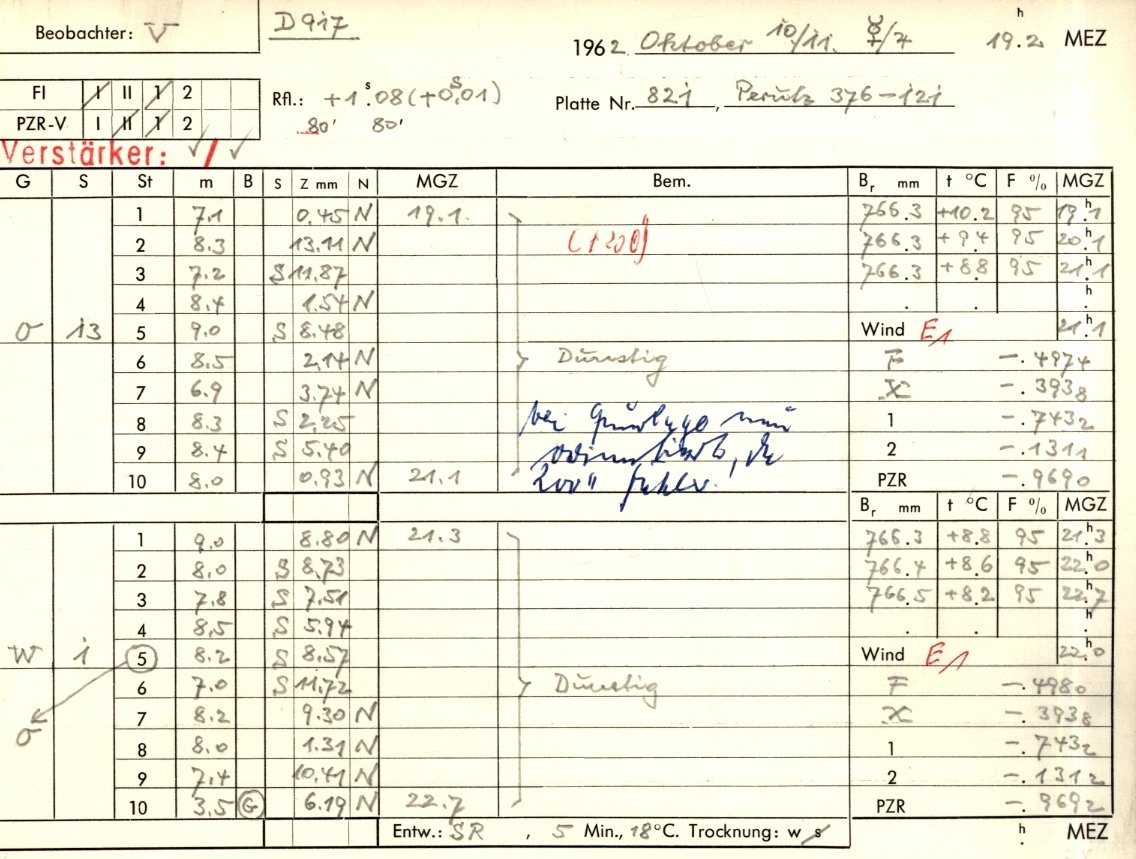 Beobachter: V
D917
1962 Oktober 10/11. ☿/7 19.2 h MEZ
FI I II 1 2
PZR-V I II 1 2
Rfl.: +1 s.08 (+0 s.01)
80' 80'
Platte Nr. 821, Perutz 376-121
Verstärker: ✓/✓
G S St m B S Z mm N MGZ Bem. Br mm t °C F % MGZ
1 7.1 0.45 N 19.1 766.3 +10.2 95 19h.1
2 8.3 13.11 N (+200) 766.3 +9.4 95 20h.1
3 7.2 S 11.87 766.3 +8.8 95 21h.1
4 8.4 1.54 N . . h.
σ 13 5 9.0 S 8.48 Wind E1 21h.1
6 8.5 2.14 N Dunstig F -.4974
7 6.9 3.74 N X -.3938
8 8.3 S 2.25 bei 1 -.7432
9 8.4 S 5.40 2 -.1311
10 8.0 0.93 N 21.1 200" PZR -.9690
Br mm t °C F % MGZ
1 9.0 8.80 N 21.3 766.3 +8.8 95 21h.3
2 8.0 S 8.73 766.4 +8.6 95 22h.0
3 7.8 S 7.51 766.5 +8.2 95 22h.7
4 8.5 S 5.94 . . h.
W 1 5 8.2 S 8.57 Wind E1 22h.0
6 7.0 S 11.72 Dunstig F -.4980
σ 7 8.2 9.30 N X -.3938
8 8.0 1.31 N 1 -.7432
9 7.4 10.41 N 2 -.1312
10 3.5 G 6.19 N 22.7 PZR -.9692
Entw.: SR, 5 Min., 18°C. Trocknung: w s h. MEZ